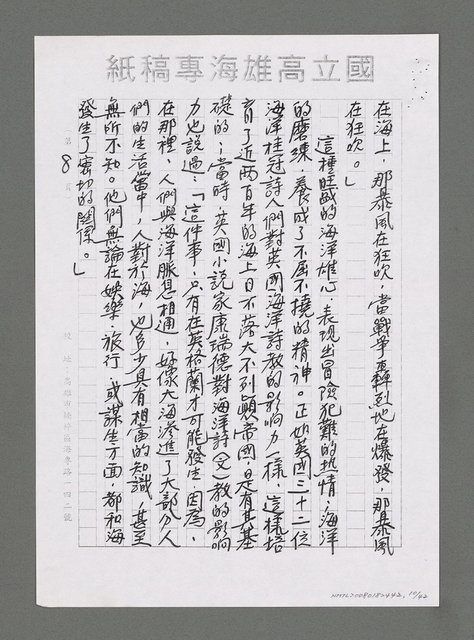 國立高雄海專稿紙
在海上，那暴風在狂吹，當戰爭轟烈地在爆發，那暴風
在狂吹。」
這種旺盛的海洋雄心，表現出冒險犯難的熱情，海洋
的磨練，養成了不屈不撓的精神。正如英國三十二位
海洋桂冠詩人們對英國海洋詩教的影响力一樣，這樣培
育了近两百年的海上日不落大不列顛帝國，是有其基
礎的；當時，英國小説家康瑞德對海洋詩(文)教的影响
力也說過：「這件事，只有在英格蘭才可能發生，因為，
在那裡，人們與海洋脈息相通，好像大海滲進了大部分人
們的生活當中，人對於海，也多少具有相當的知識，甚至
無所不知。他們無論在娛樂，旅行，或謀生方面，都和海
發生了密切的關係。」
第 8 頁
校址：高雄市楠梓區海專路一四二號
NMTL20080182442, 10/42